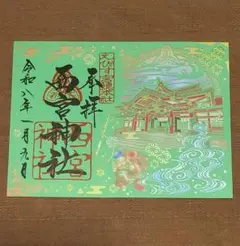 奉拝
西宮神社
令和八年一月九日